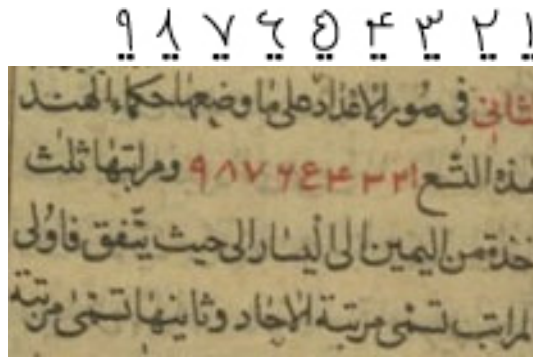 ۱ ۲ ۳ ۴ ۵ ۶ ۷ ۸ ۹
فى صور الاعداد على ما وضعها حكماء الهند
هذه التسع ۱ ۲ ۳ ۴ ۵ ۶ ۷ ۸ ۹ ومراتبها ثلث
من اليمين الى اليسار الى حيث يتفق فاولى
المراتب تسمى مرتبة الآحاد وثانيتها تسمى مرتبة